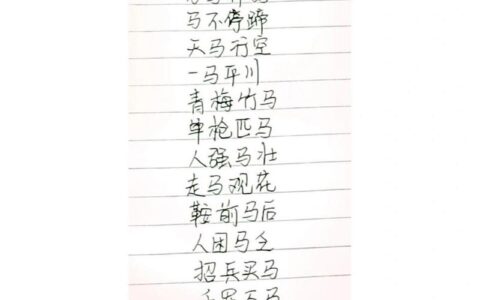 马不停蹄
天马行空
一马平川
青梅竹马
单枪匹马
人强马壮
走马观花
鞍前马后
人困马乏
招兵买马
千军万马